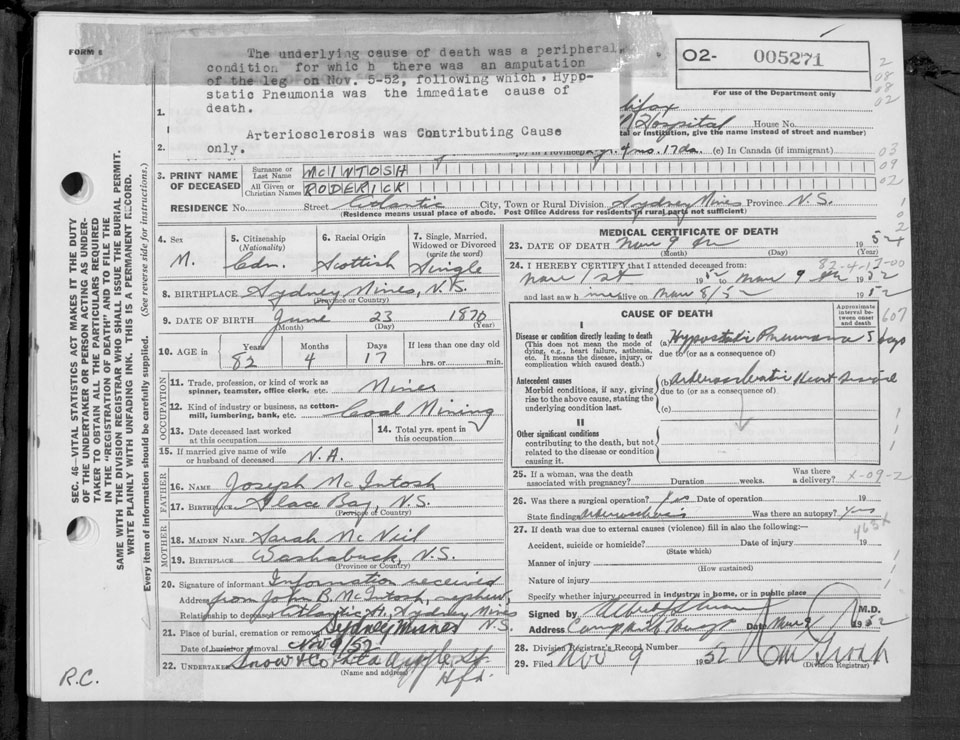 FORM 5
The underlying cause of death was a peripheral
condition for whic h there was an amputation
of the leg on Nov. 5-52, following which, Hypp-
static Pneumonia was the immediate cause of
death.
Arteriosclerosis was Contributing Cause
only.
O2- 005271
For use of the Department only
lifax
Hospital House No.
tal or institution, give the name instead of street and number)
1.
2. 4 mo. 17 da. (c) In Canada (if immigrant)
3. PRINT NAME OF DECEASED
Surname or Last Name McINTOSH
All Given or Christian Names RODERICK
RESIDENCE No. Street Atlantic City, Town or Rural Division Sydney Mines Province N.S.
(Residence means usual place of abode. Post Office Address for residents in rural parts not sufficient)
4. Sex M.
5. Citizenship (Nationality) Cdn.
6. Racial Origin Scottish
7. Single, Married, Widowed or Divorced (write the word) Single
8. BIRTHPLACE Sydney Mines, N.S.
(Province or Country)
9. DATE OF BIRTH June 23 1870
(Month) (Day) (Year)
10. AGE in Years 82 Months 4 Days 17 If less than one day old
hrs. or min.
OCCUPATION
11. Trade, profession, or kind of work as spinner, teamster, office clerk, etc. Miner
12. Kind of industry or business, as cotton-mill, lumbering, bank, etc. Coal Mining
13. Date deceased last worked at this occupation
14. Total yrs. spent in this occupation
15. If married give name of wife or husband of deceased N.A.
FATHER
16. NAME Joseph McIntosh
17. BIRTHPLACE Glace Bay, N.S.
(Province or Country)
MOTHER
18. MAIDEN NAME Sarah McNeil
19. BIRTHPLACE Washabuck, N.S.
(Province or Country)
20. Signature of informant Information received
Address from John B. McIntosh, nephew
Relationship to deceased Atlantic St, Sydney Mines
N.S.
21. Place of burial, cremation or removal Sydney Mines
Date of burial or removal Nov 9/52
22. Undertaker Snow & Co
(Name and address)
Hfx.
MEDICAL CERTIFICATE OF DEATH
23. DATE OF DEATH Nov 9 1952
(Month) (Day)
24. I HEREBY CERTIFY that I attended deceased from:
Nov 1st 1952 to Nov 9 1952
and last saw him alive on Nov 8/52 1952
CAUSE OF DEATH
Approximate interval between onset and death
I
Disease or condition directly leading to death
(This does not mean the mode of dying, e.g., heart failure, asthenia, etc. It means the disease, injury, or complication which caused death.)
(a) Hypostatic Pneumonia 5 days
due to (or as a consequence of)
Antecedent causes
Morbid conditions, if any, giving rise to the above cause, stating the underlying condition last.
(b) Arteriosclerotic Heart Disease
due to (or as a consequence of)
(c)
II
Other significant conditions
contributing to the death, but not related to the disease or condition causing it.
25. If a woman, was the death associated with pregnancy? Duration weeks. Was there a delivery?
26. Was there a surgical operation? Yes Date of operation 19
State findings Arteriosclerosis Was there an autopsy? Yes
27. If death was due to external causes (violence) fill in also the following:—
Accident, suicide or homicide? Date of injury 19
(State which)
Manner of injury
(How sustained)
Nature of injury
Specify whether injury occurred in industry in home, or in public place
Signed by M.D.
Address Camp Hill Hosp Date Nov 9 1952
28. Division Registrar's Record Number
29. Filed Nov 9 1952
(Division Registrar)
SEC. 46—VITAL STATISTICS ACT MAKES IT THE DUTY
OF THE UNDERTAKER OR PERSON ACTING AS UNDER-
TAKER TO OBTAIN ALL THE PARTICULARS REQUIRED
IN THE "REGISTRATION OF DEATH" AND TO FILE THE
SAME WITH THE DIVISION REGISTRAR WHO SHALL ISSUE THE BURIAL PERMIT.
WRITE PLAINLY WITH UNFADING INK. THIS IS A PERMANENT RECORD.
Every item of information should be carefully supplied. (See reverse side for instructions.)
R.C.